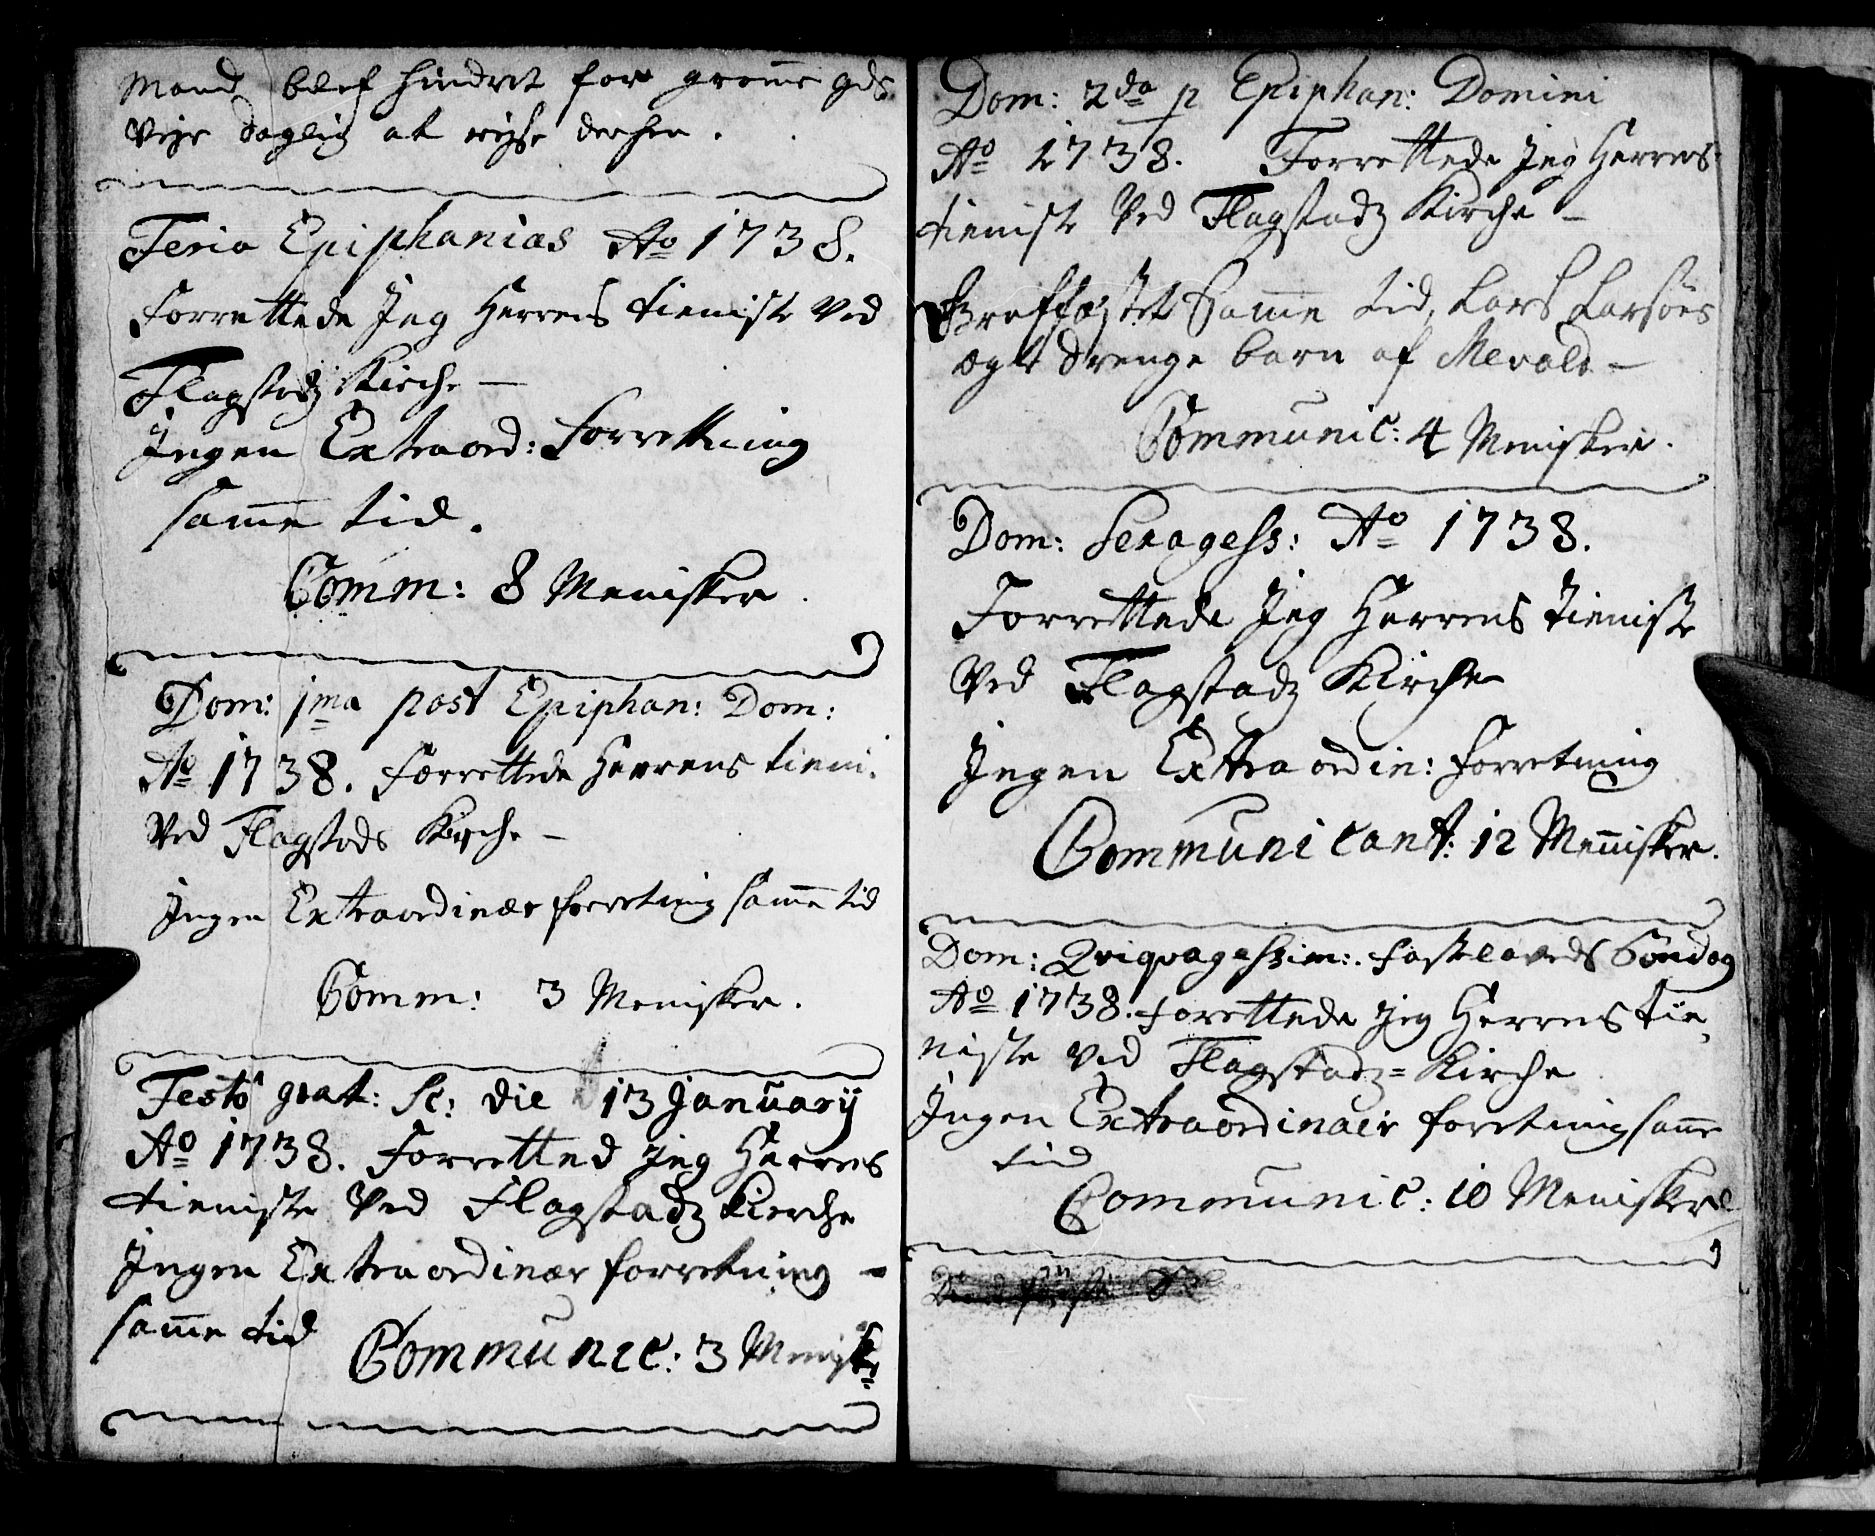 Mand blef hindret for
Vejr daglig at rejse derhen.
Feria Epiphanias Ao 1738.
Forrettede Jeg Herrens tieniste Ved
Flagstadz Kirche –
Jngen Extraord: Forrettning
samme tid.
Comm: 8 Menisker.
Dom: 1ma post Epiphan: Dom:
Ao 1738. Forrettede Herrens tieni:
Ved Flagstads Kirche –
Jngen Extraordinær forretning samme tid
Comm: 3 Menisker.
Festo grat: Sc: die 13 January
Ao 1738. Forretted Jeg Herrens
tieniste Ved Flagstadz Kierche
Jngen Extraordinær forretning –
samme tid Communic: 3 Menisk:
Dom: 2da p Epiphan: Domini
Ao 1738. Forrettede Jeg Herrens
tieniste Ved Flagstadz Kirche –
Samme tid, Lars Larsøns
ægte drenge barn af Mevold –
Communic: 4 Menisker.
Dom: Sexagess: Ao 1738.
Forrettede Jeg Herrens Tieniste
Ved Flagstadz Kirche
Jngen Extraordin: forretning
Communicant: 12 Mennisker.
Dom: Qviqvagessim: fastelavnds Söndag
Ao 1738. forettede Jeg Herrens tie
niste Ved Flagstadz= Kirche
Jngen Extraordinair foretning samme
tid
Communic: 10 Menisker